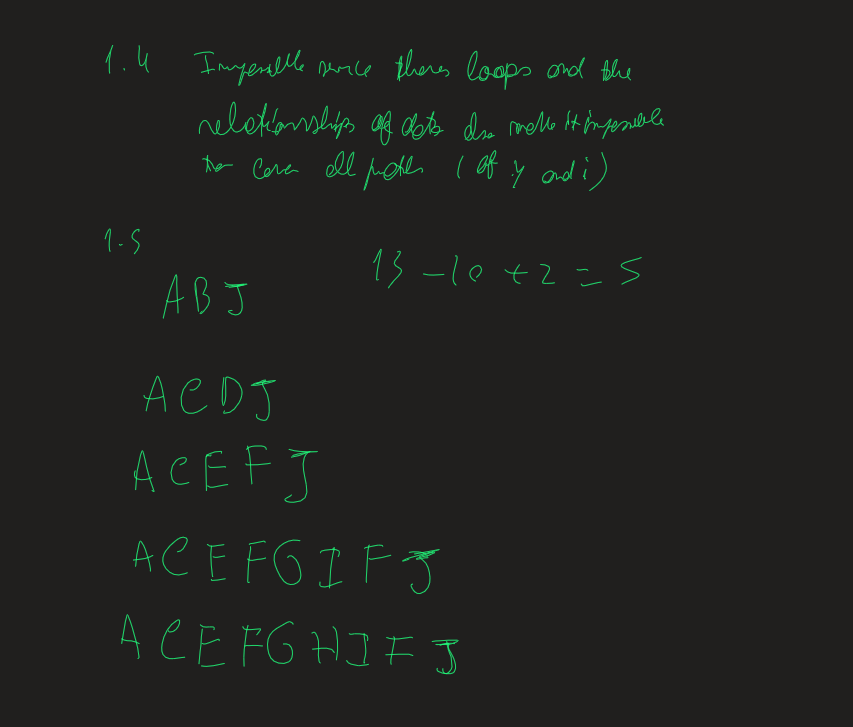 1.4 Impossible since theres loops and the
relationships of data also make it impossible
to cover all paths (of y and i)
1.5
13 - 10 + 2 = 5
ABJ
ACDJ
ACEFJ
ACEFGIFJ
ACEFGHIFJ